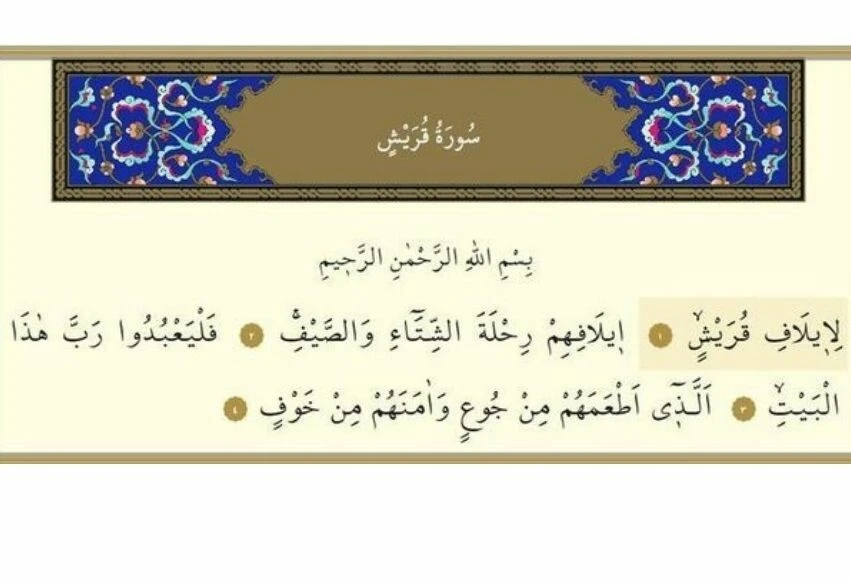 سُورَةُ قُرَيْشٍ
بِسْمِ اللّٰهِ الرَّحْمٰنِ الرَّح۪يمِ
لِا۪يلَافِ قُرَيْشٍۙ ١ ا۪يلَافِهِمْ رِحْلَةَ الشِّتَٓاءِ وَالصَّيْفِۚ ٢ فَلْيَعْبُدُوا رَبَّ هٰذَا
الْبَيْتِۙ ٣ اَلَّـذ۪ٓي اَطْعَمَهُمْ مِنْ جُوعٍ وَاٰمَنَهُمْ مِنْ خَوْفٍ ٤